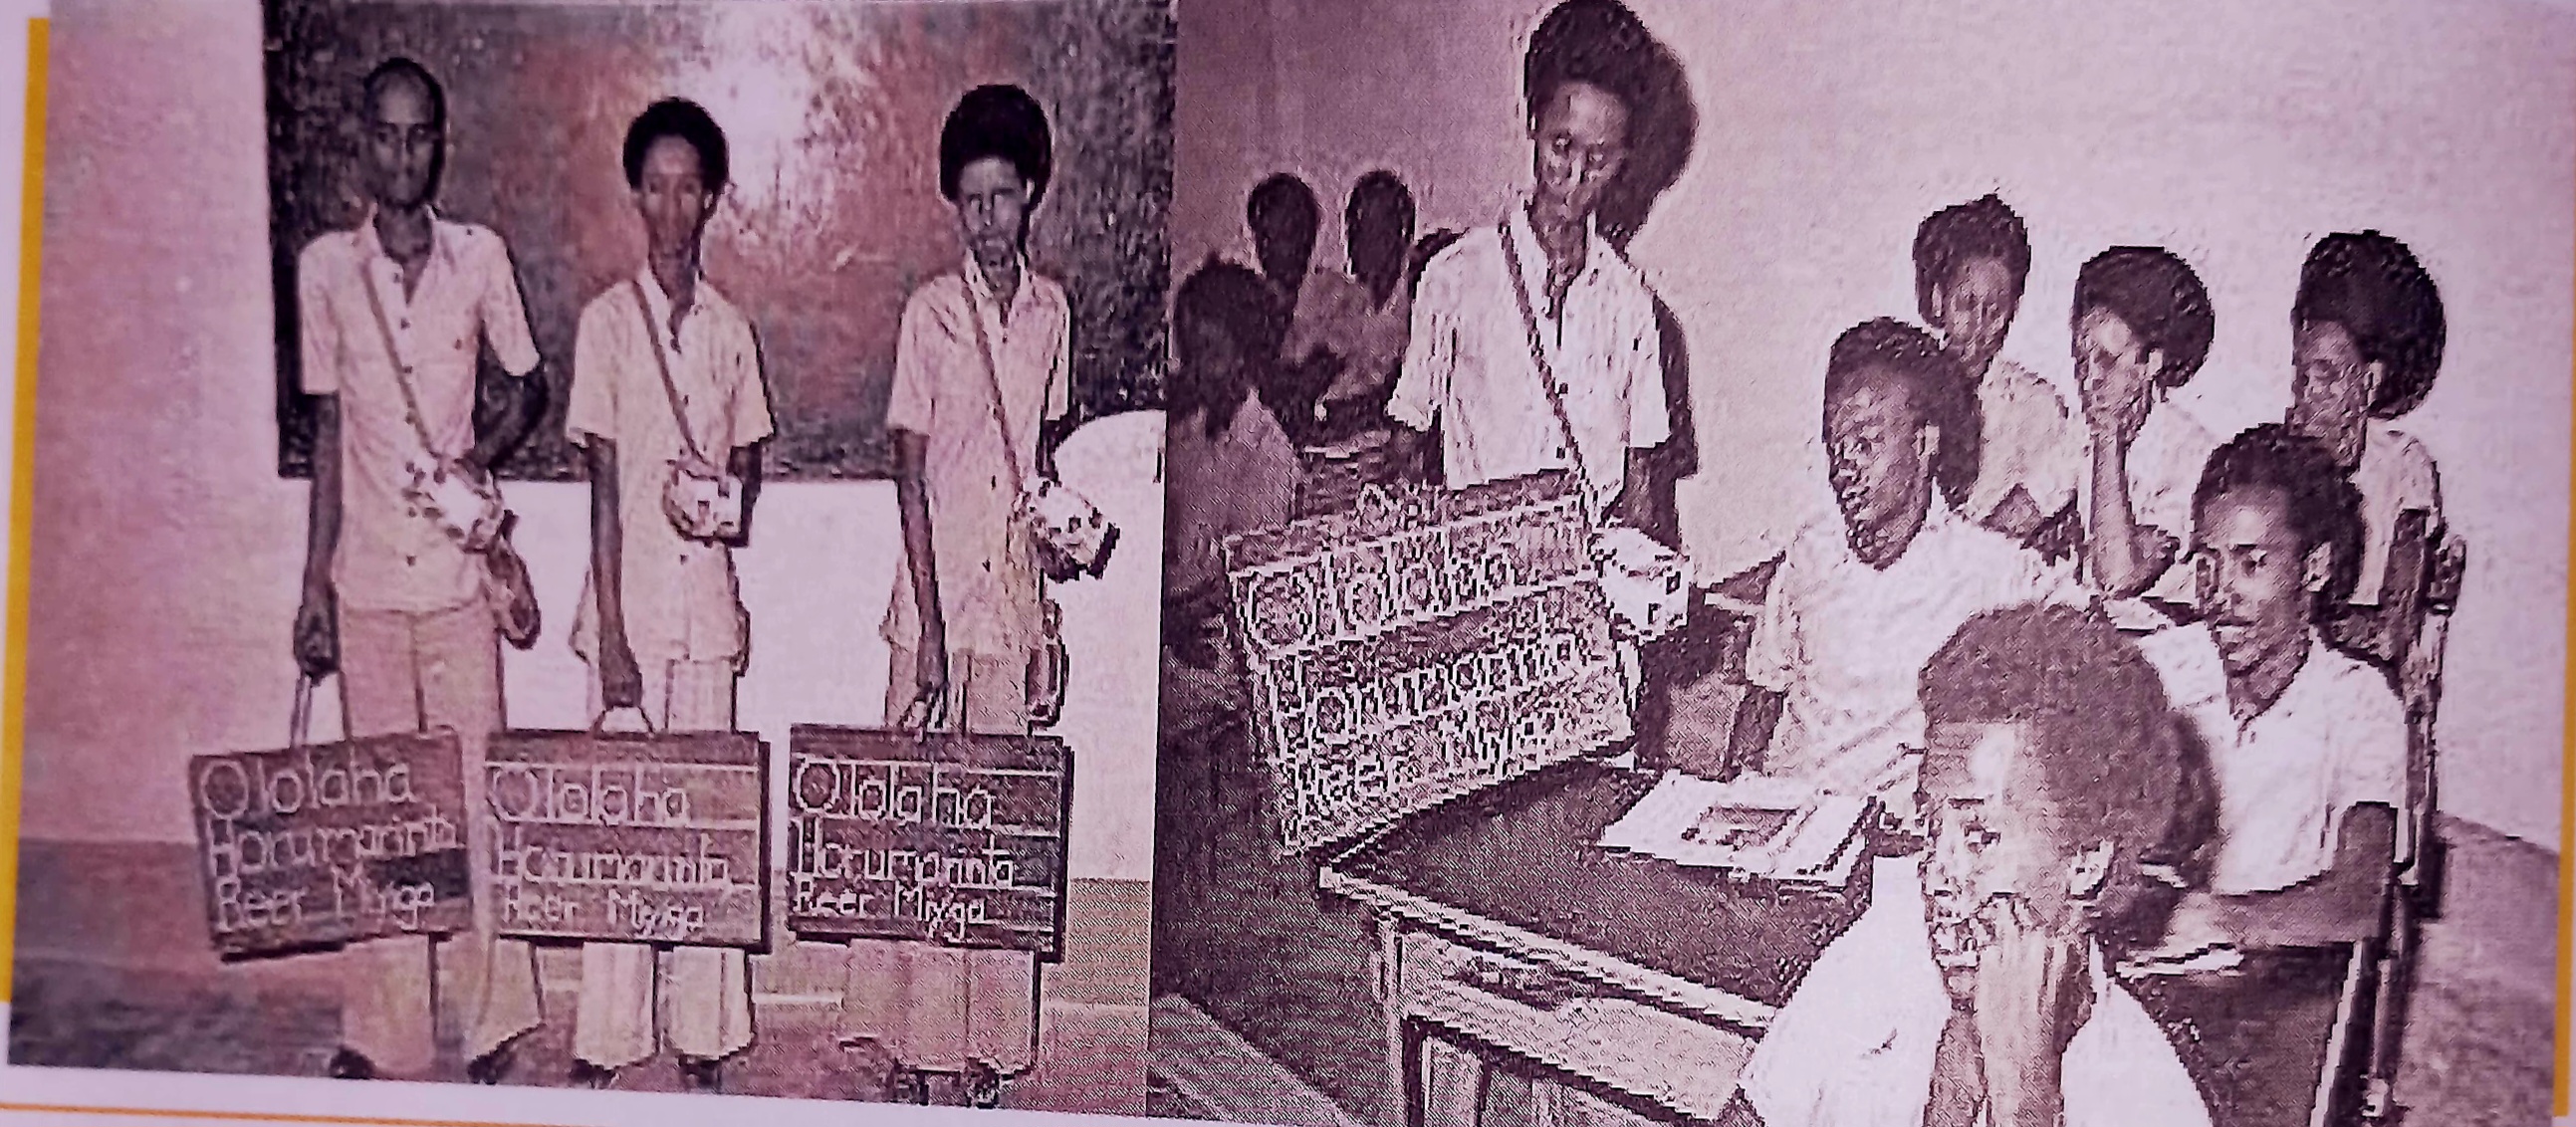 Ololaha
Horumarinta
Reer Miyiga
Ololaha
Horumarinta
Reer Miyiga
Ololaha
Horumarinta
Reer Miyiga
Ololaha
Horumarinta
Reer Miyiga